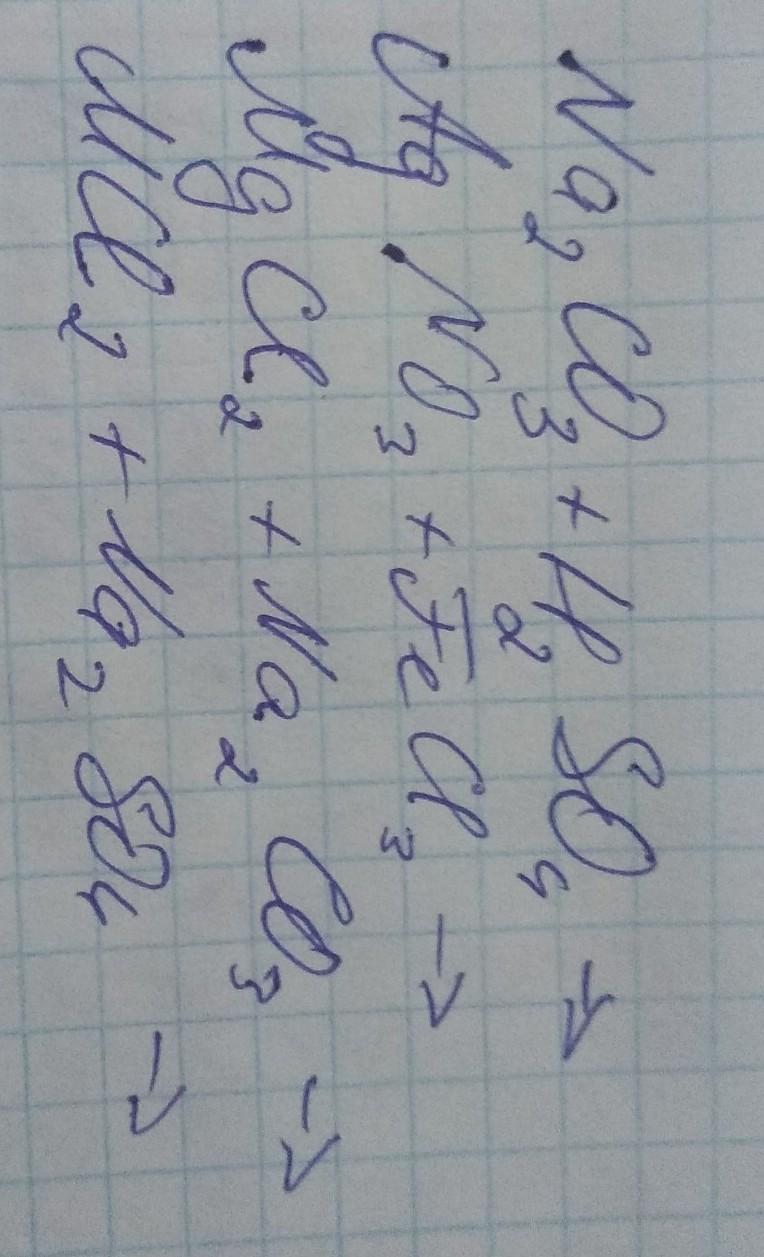 Na₂CO₃ + H₂SO₄ →
AgNO₃ + FeCl₃ →
MgCl₂ + Na₂CO₃ →
MCl₂ + Na₂SO₄ →